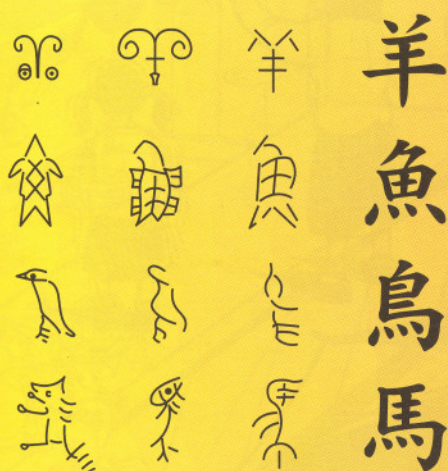 羊
魚
鳥
馬